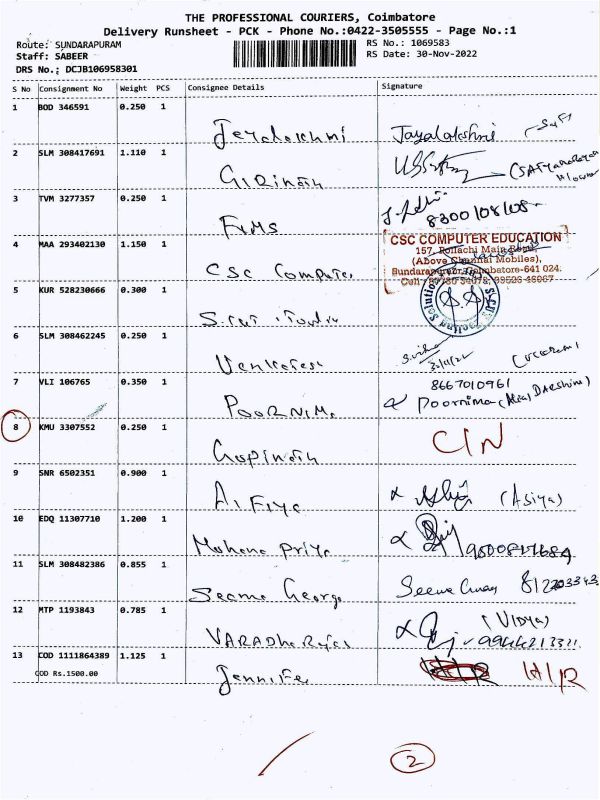 THE PROFESSIONAL COURIERS, Coimbatore
Delivery Runsheet - PCK - Phone No.:0422-3505555 - Page No.:1
Route: SUNDARAPURAM
Staff: SABEER
DRS No.; DCJB106958301
RS No.: 1069583
RS Date: 30-Nov-2022
S No Consignment No Weight PCS Consignee Details Signature
1 BOD 346591 0.250 1
Jayalakshmi
2 SLM 308417691 1.110 1
Girinath
3 TVM 3277357 0.250 1
FIMS
8300108108
4 MAA 293402130 1.150 1
CSC Computer
CSC COMPUTER EDUCATION
157, Pollachi Main Road
(Above Chennai Mobiles),
Sundarapuram, Coimbatore-641 024.
5 KUR 528230666 0.300 1
6 SLM 308462245 0.250 1
Venkatesh
30/11/22
7 VLI 106765 0.350 1
POORNIMA
8667010961
Poornima
8 KMU 3307552 0.250 1
Gopinath
C/N
9 SNR 6502351 0.900 1
(Asiya)
10 EDQ 11307710 1.200 1
Mohana Priya
11 SLM 308482386 0.855 1
Seema George
12 MTP 1193843 0.785 1
(VIDYA)
13 COD 1111864389 1.125 1
COD Rs.1500.00
Jennifer
H/R
2